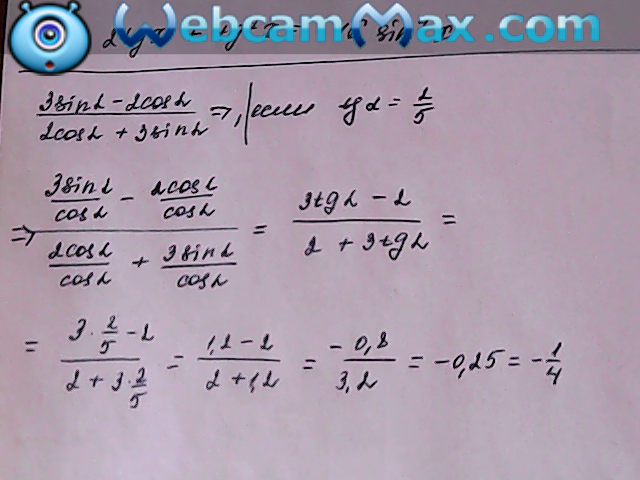 WebcamMax.com
(3sinα - 2cosα)/(2cosα + 3sinα) ⇒, если tgα = 2/5
⇒ (3sinα/cosα - 2cosα/cosα)/(2cosα/cosα + 3sinα/cosα) = (3tgα - 2)/(2 + 3tgα) =
= (3·2/5 - 2)/(2 + 3·2/5) = (1,2 - 2)/(2 + 1,2) = -0,8/3,2 = -0,25 = -1/4